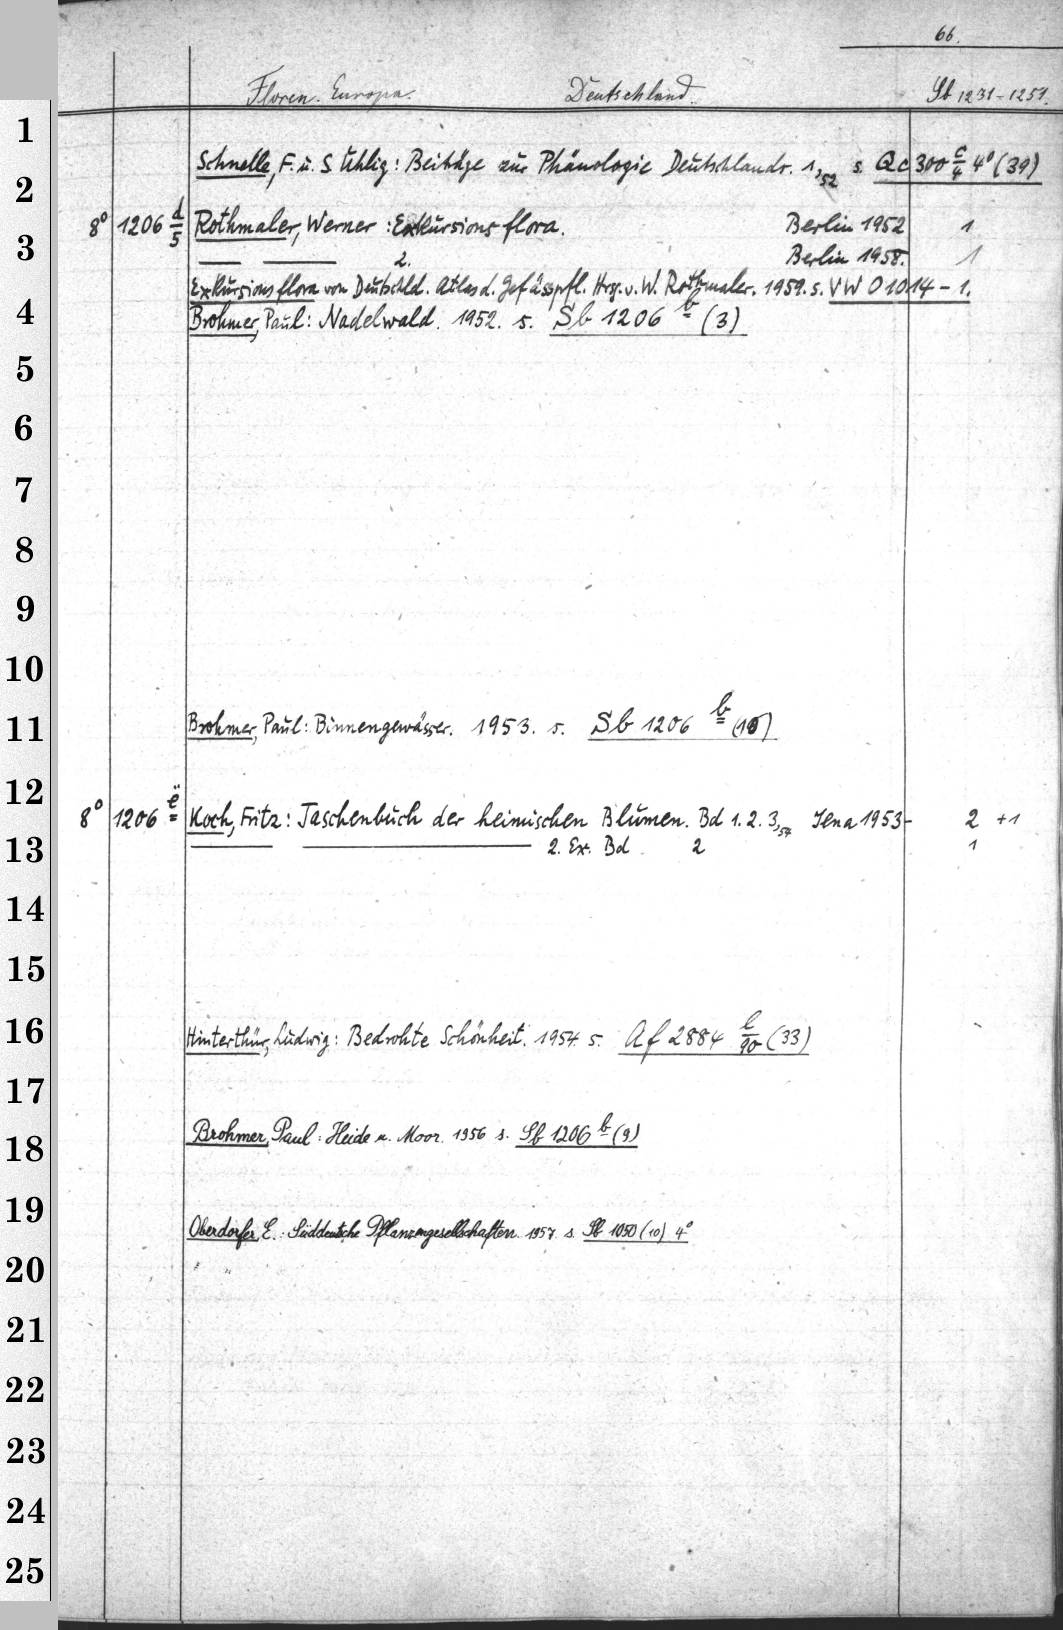 66.
Floren. Europa. Deutschland. Sb 1231-1251.
1
Schnelle, F. u. S. Uhlig: Beiträge zur Phänologie Deutschlands. 1,52 s. Qc 300 c/4 4° (39)
2
8° 1206 d/5 Rothmaler, Werner: Exkursionsflora. Berlin 1952 1
3
— — 2. Berlin 1958. 1
Exkursionsflora von Deutschld. Atlas d. Gefässpfl. Hrg. v. W. Rothmaler. 1959. s. VW 01014-1.
4
Brohmer, Paul: Nadelwald. 1952. s. Sb 1206 b (3)
5
6
7
8
9
10
11
Brohmer, Paul: Binnengewässer. 1953. s. Sb 1206 b
12
8° 1206 ë Koch, Fritz: Taschenbuch der heimischen Blumen. Bd 1. 2. 3,54 Jena 1953- 2 +1
13
— — 2. Ex. Bd 2 1
14
15
16
Hinterthür, Ludwig: Bedrohte Schönheit. 1954 s. Af 2884 l/90 (33)
17
18
Brohmer, Paul: Heide u. Moor. 1956 s. Sb 1206 b (9)
19
Oberdorfer, E.: Süddeutsche Pflanzengesellschaften. 1957. s. Sb 1050 (10) 4°
20
21
22
23
24
25